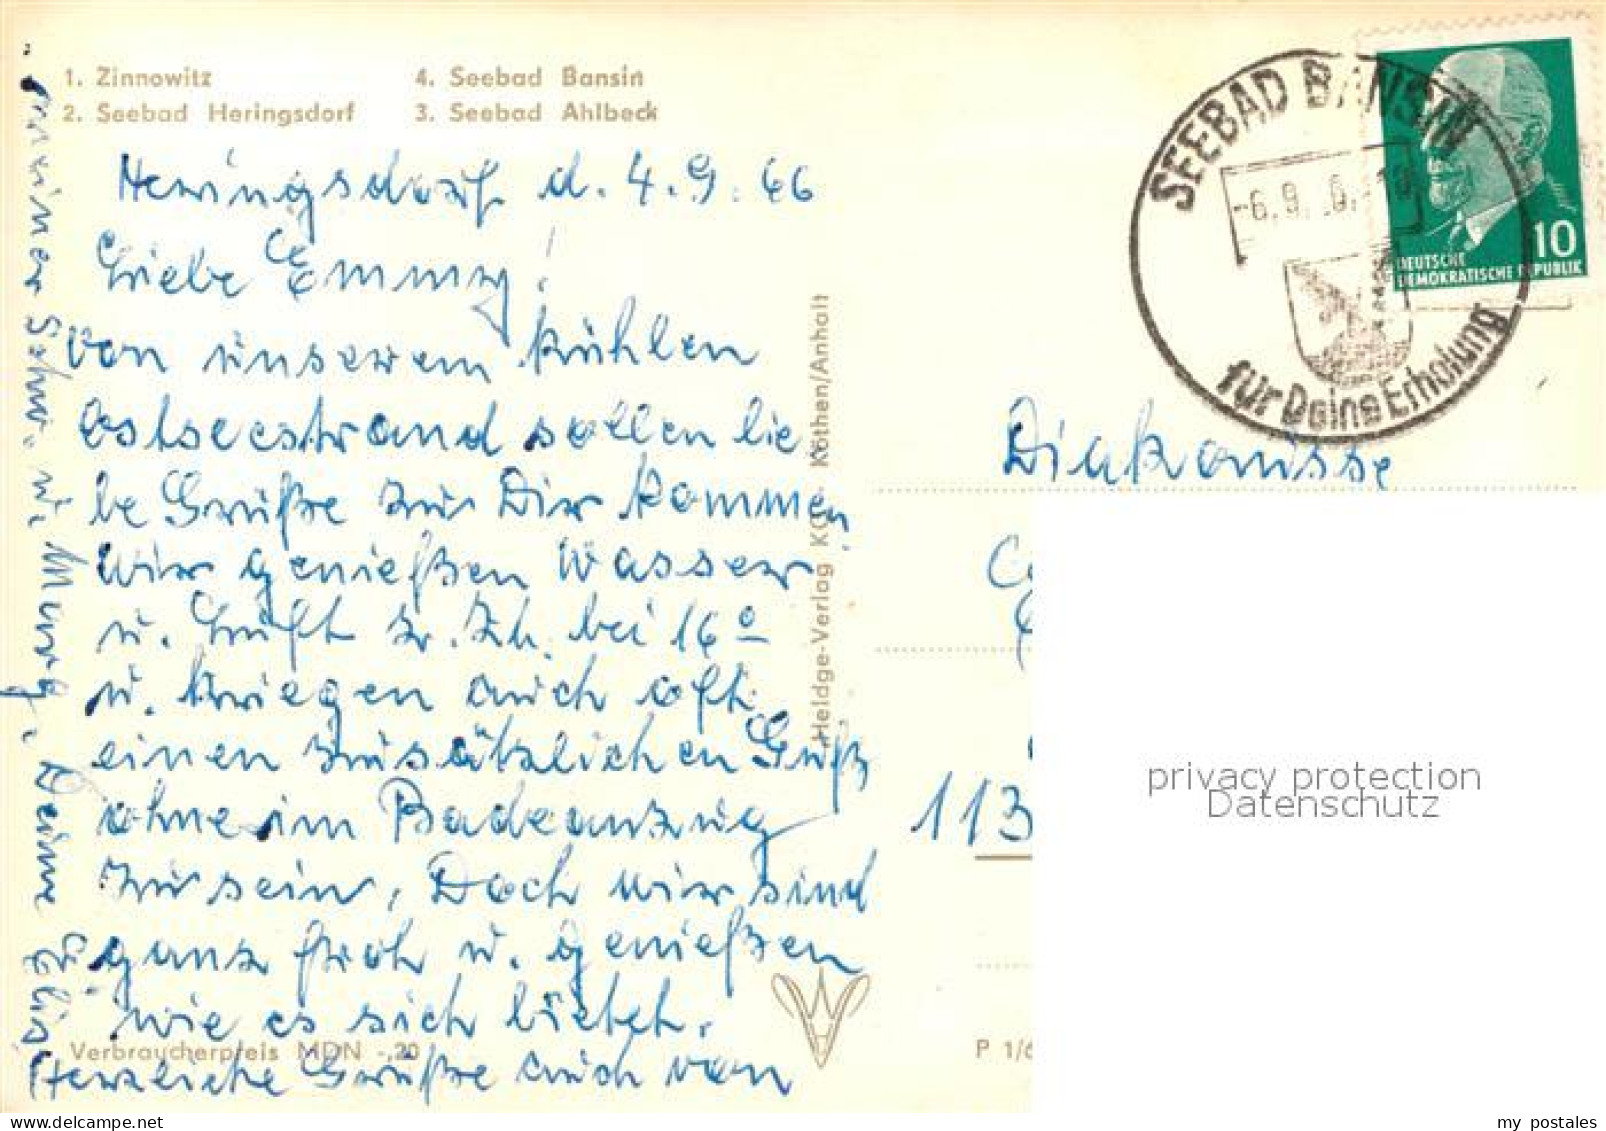 1. Zinnowitz
2. Seebad Heringsdorf
4. Seebad Bansin
3. Seebad Ahlbeck
Heringsdorf d. 4.9.66
Liebe Emmy!
von unserem kühlen
Ostseestrand sollen lie
be Grüße zu Dir kommen
Wir genießen Wasser
u. Luft z. Zt. bei 16°
u. kriegen auch oft
einen zusätzlichen Guß
ohne im Badeanzug
zu sein. Doch wir sind
ganz froh u. genießen
wie es sich bietet.
Herzliche Grüße auch von
meiner Schw. u. Marg. Deine Elis
Verbraucherpreis MDN -,20
Heldge-Verlag KG. Köthen/Anhalt
SEEBAD BANSIN
-6.9.
für Deine Erholung
10
DEUTSCHE
DEMOKRATISCHE REPUBLIK
Diakonisse
113
P 1/6
privacy protection
Datenschutz
my postales